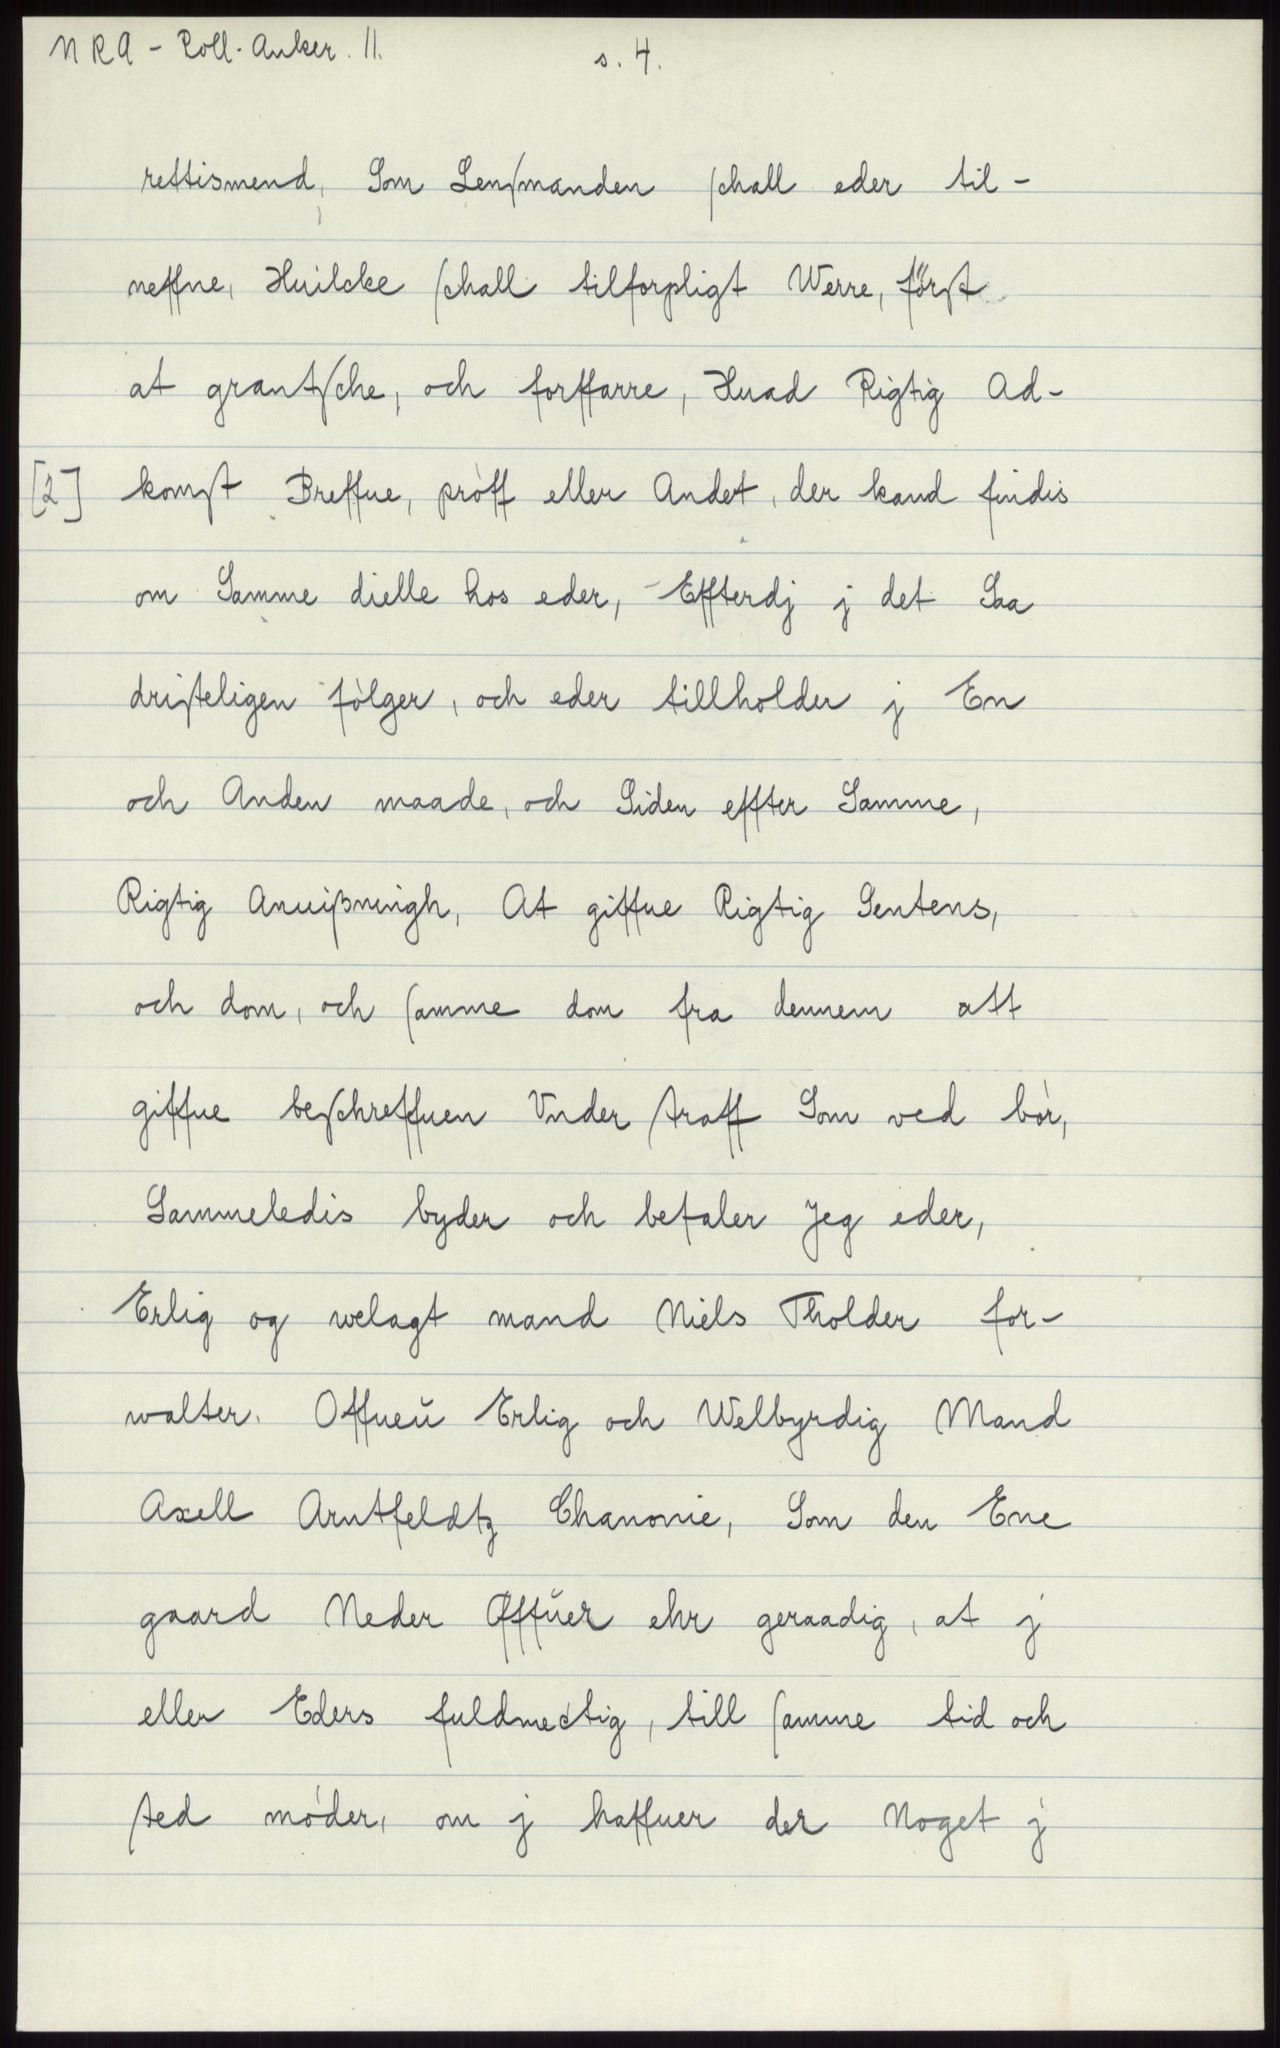 NRA - Roll. Anker. 11.
s. 4.
rettismend, Som Lensmanden schall eder til-
neffne, Huilcke schall tilforpligt Werre, först
at grantsche, och forffarre, Huad Rigtig Ad-
[2] komst Breffue, pròff eller Andet, der kand findis
om Samme dielle hos eder, Effterdj j det Saa
dristeligen følger, och eder tillholder j En
och Anden maade, och Siden effter Samme,
Rigtig Anuißningh, At giffue Rigtig Sentens,
och dom, och samme dom fra dennem att
giffue beschreffuen Vnder straff Som ved bòr,
Sammeledis byder och befaler Jeg eder,
Erlig og welagt mand Niels Tholder for-
walter. Offueŭ Erlig och Welbyrdig Mand
Axell Arntfeldtz Chanonie, Som den Ene
gaard Neder Øffŭer ehr geraadig, at j
eller Eders fuldmectig, till samme tid och
sted mòder, om j haffuer der Noget j